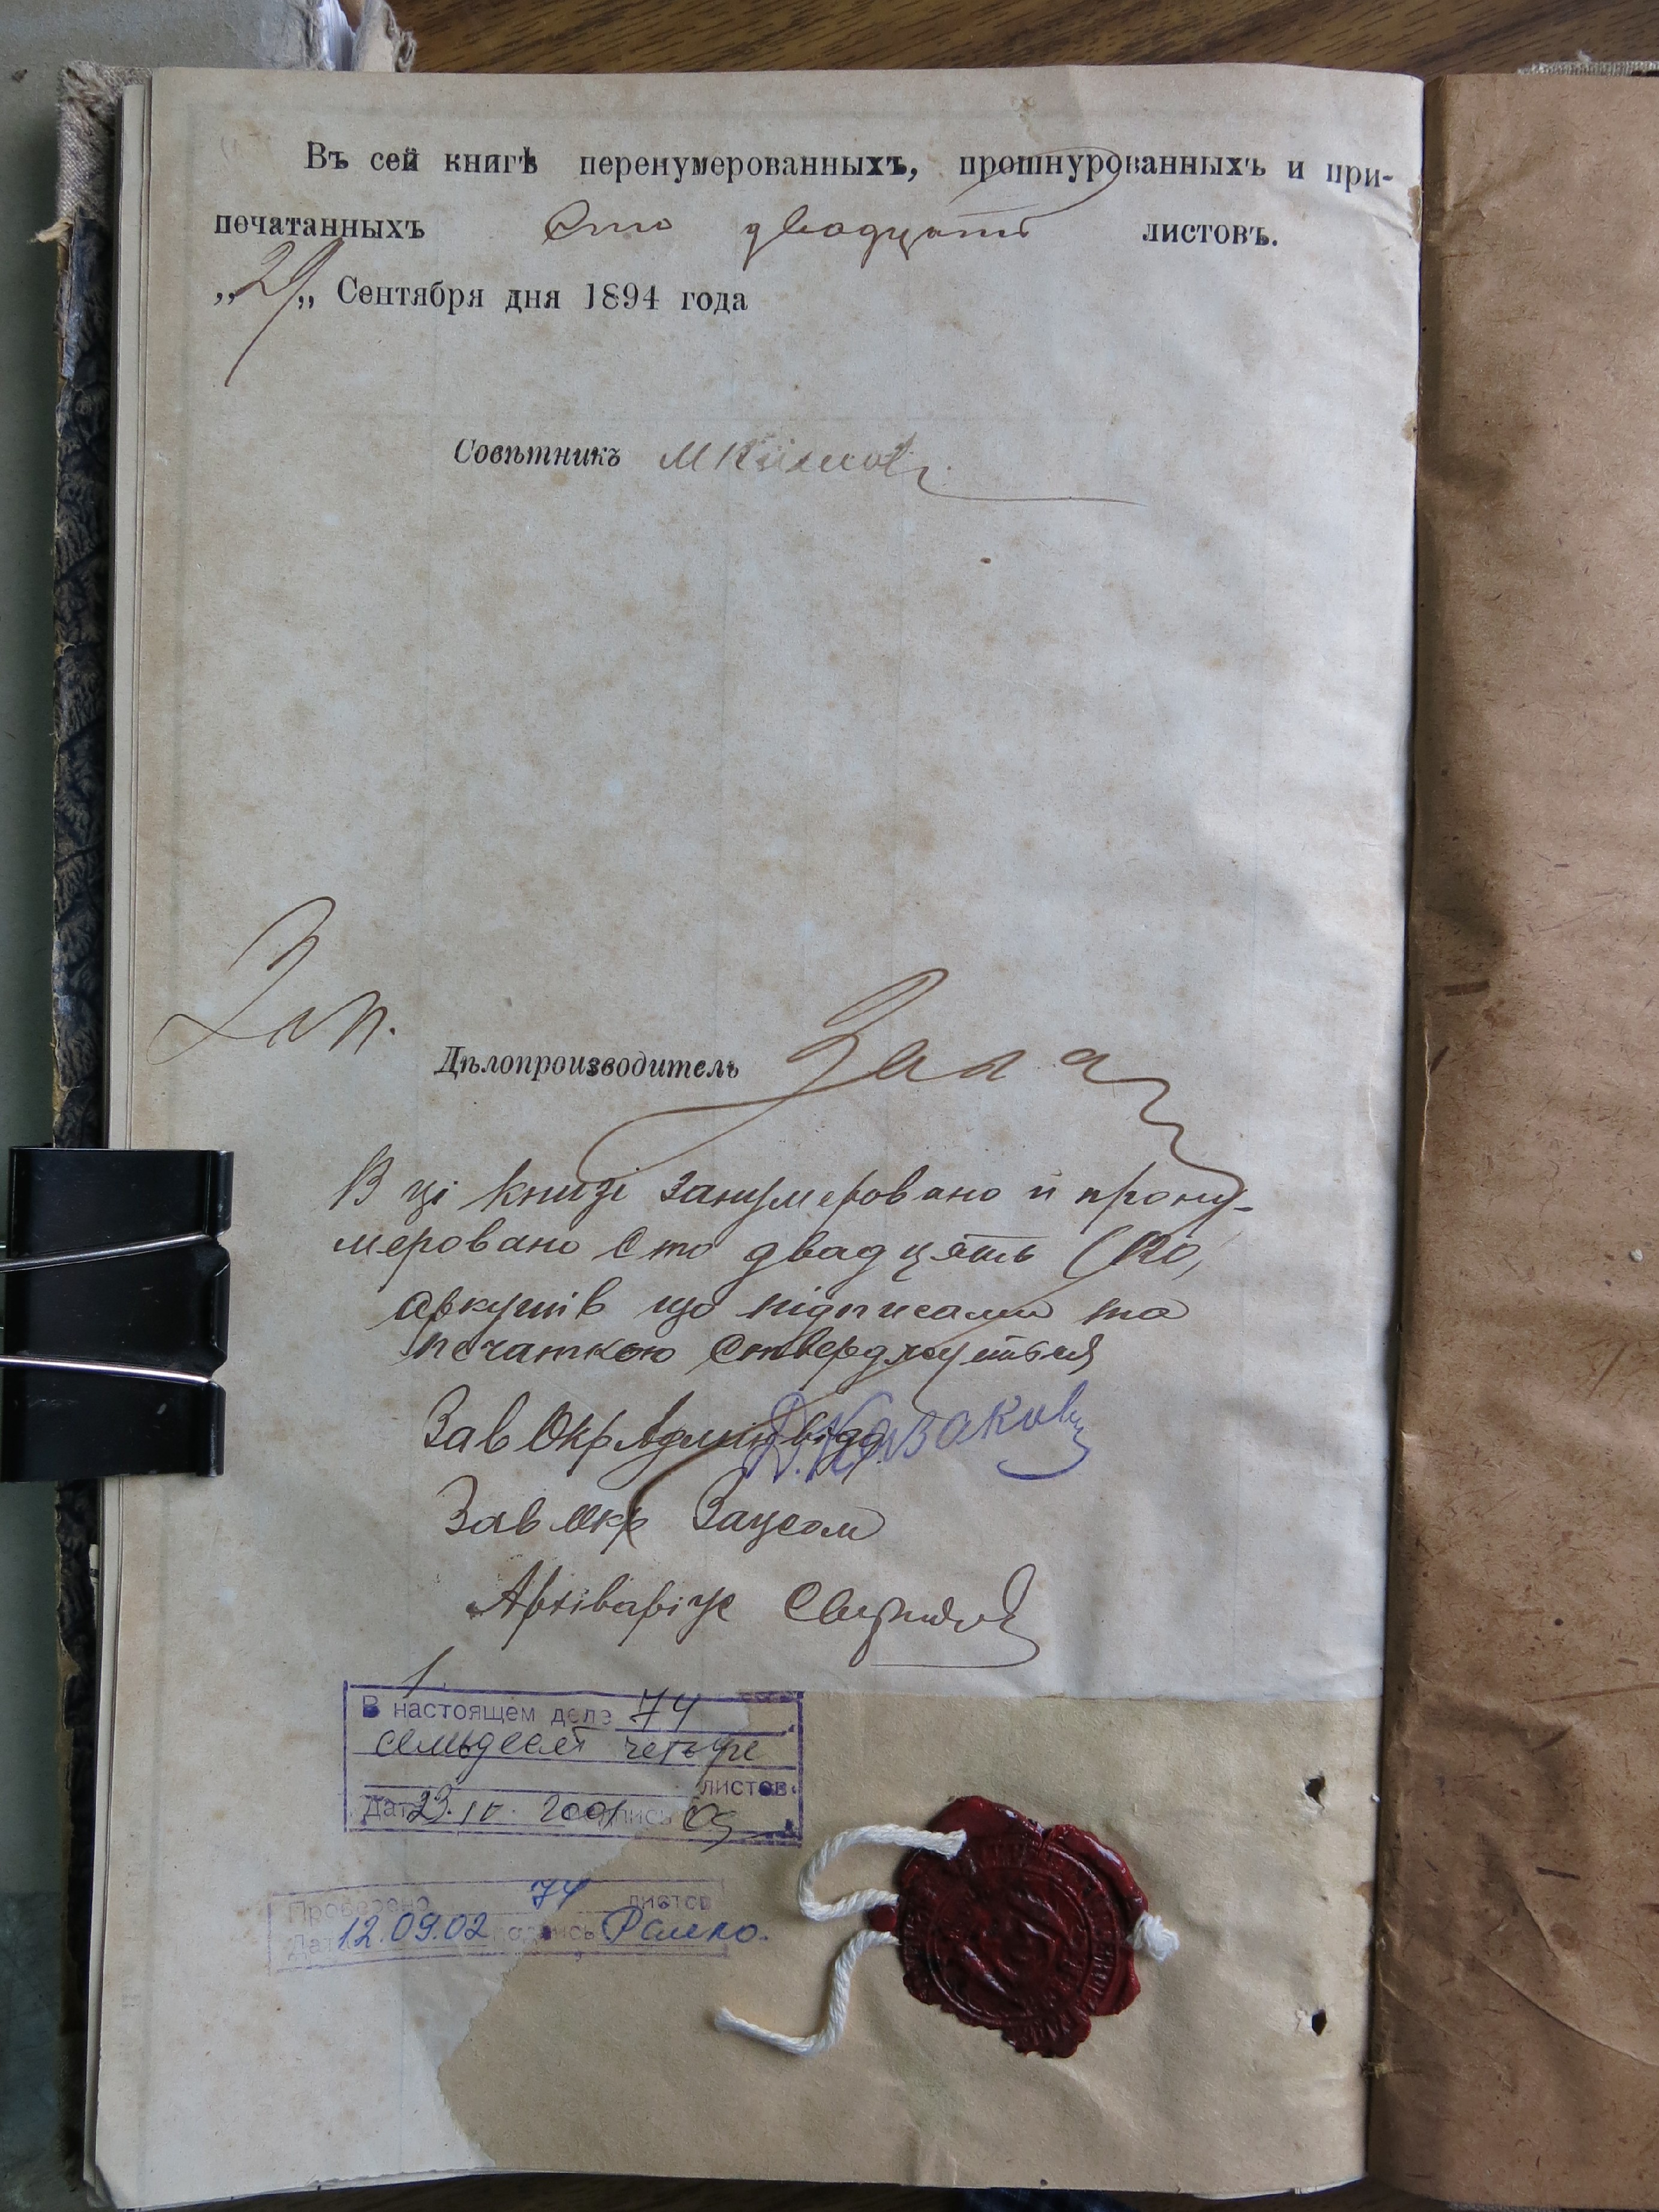 Въ сей книгѣ перенумерованныхъ, прошнурованныхъ и при-
печатанныхъ Сто двадцать листовъ.
„29„ Сентября дня 1894 года
Совѣтникъ
Дѣлопроизводитель
В ці книзі занумеровано и прону-
меровано Сто двадцять (120)
аркушів що підписами та
печаткою стверджується
Зав Окр Адмін відд Д. Казаков
Зав Окр Загсом
Архіваріус
В настоящем деле 74
семьдесят четыре
листов
Дата 23. IV. 2001 подпись
Проверено 74 листов
Дата 12.09.02 подпись